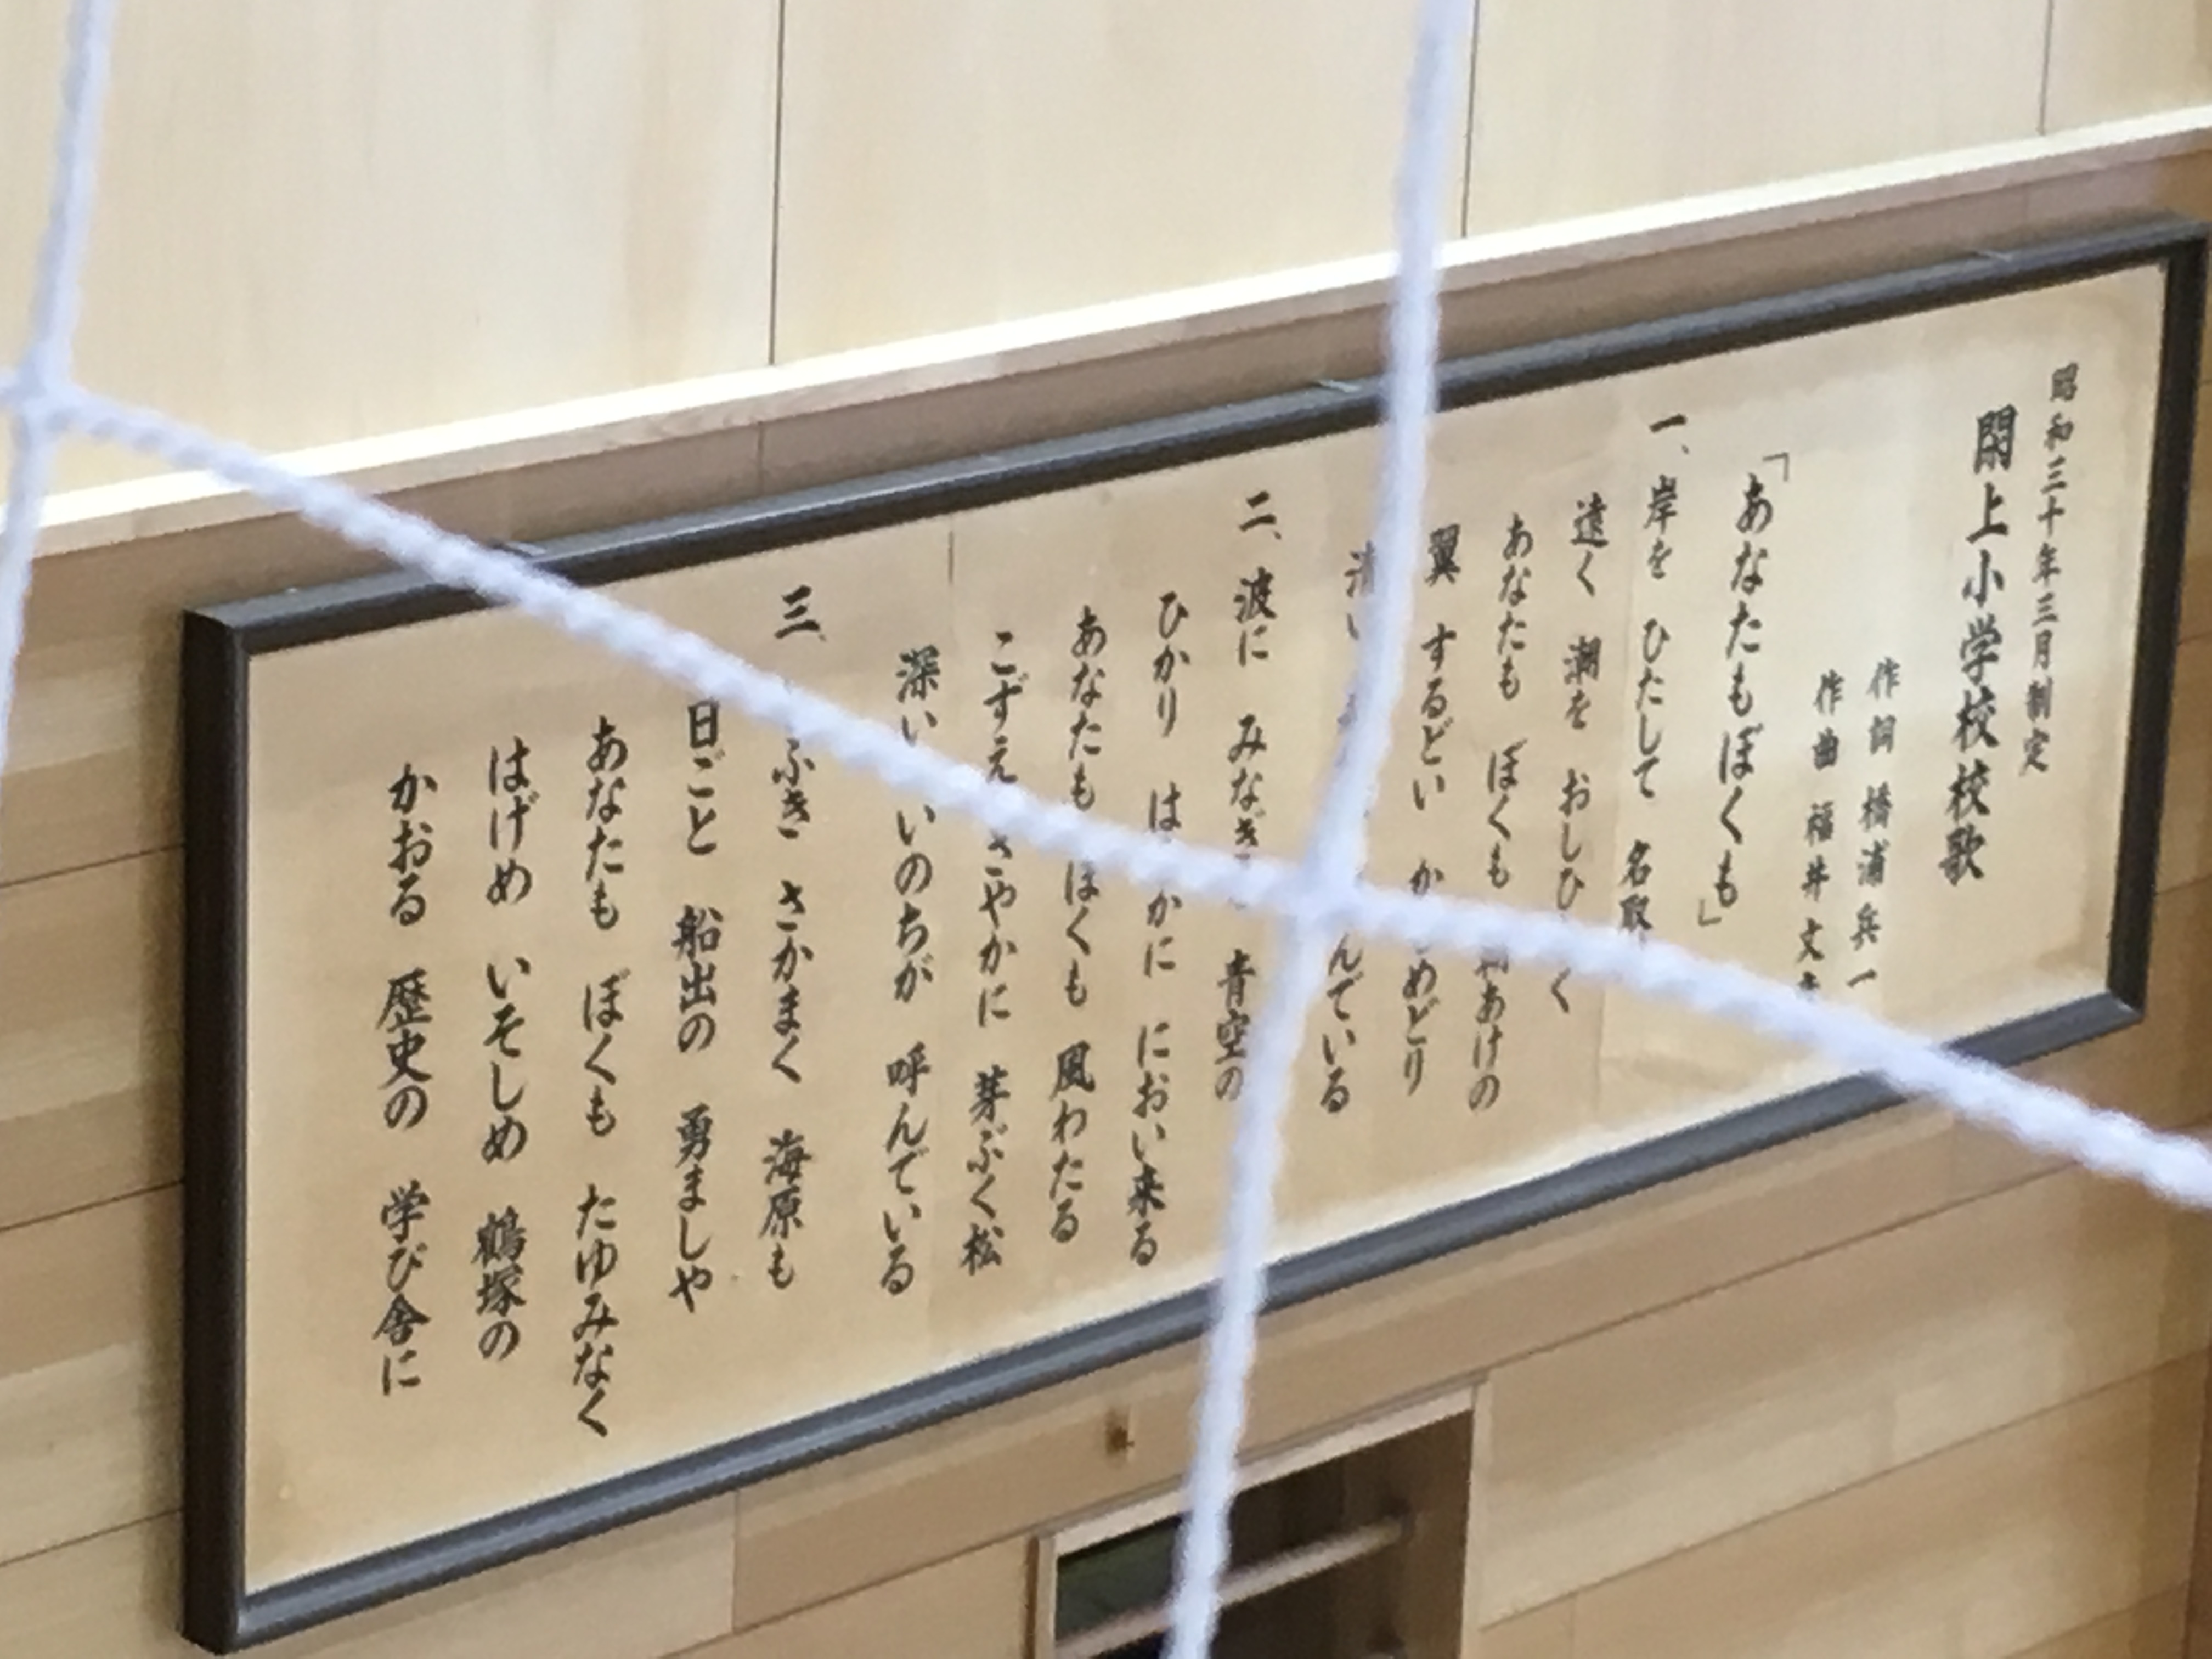 昭和三十年三月制定
閖上小学校校歌
作詞 橋浦兵一
作曲 福井文
「あなたもぼくも」
一、岸を ひたして 名取
遠く 潮を おしひ く
あなたも ぼくも あけの
翼 するどい か めどり
清い んでいる
二、波に みなぎ 青空の
ひかり は かに におい来る
あなたも ぼくも 風わたる
こずえ さやかに 芽ぶく松
深い いのちが 呼んでいる
三、 ふき さかまく 海原も
日ごと 船出の 勇ましや
あなたも ぼくも たゆみなく
はげめ いそしめ 鶴塚の
かおる 歴史の 学び舎に